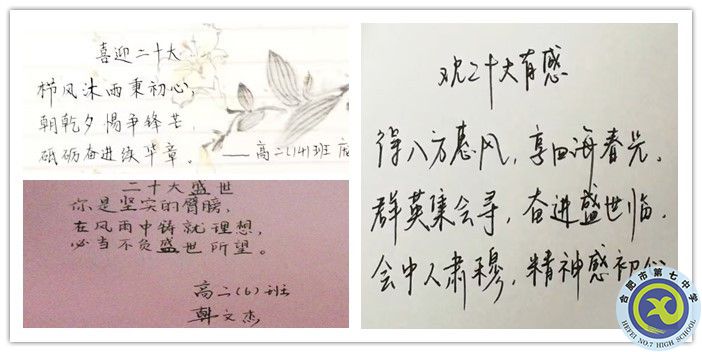 喜迎二十大
栉风沐雨秉初心,
朝乾夕惕争锋芒,
砥砺奋进续华章。——高二(14)班
二十大盛世
你是坚实的臂膀,
在风雨中铸就理想,
必当不负盛世所望。
高二(6)班
韩文杰
观二十大有感
得八方惠风,享四海春光。
群英集会寻,奋进盛世临。
会中人肃穆,精神感初心
合肥市第七中学
HEFEI NO.7 HIGH SCHOOL